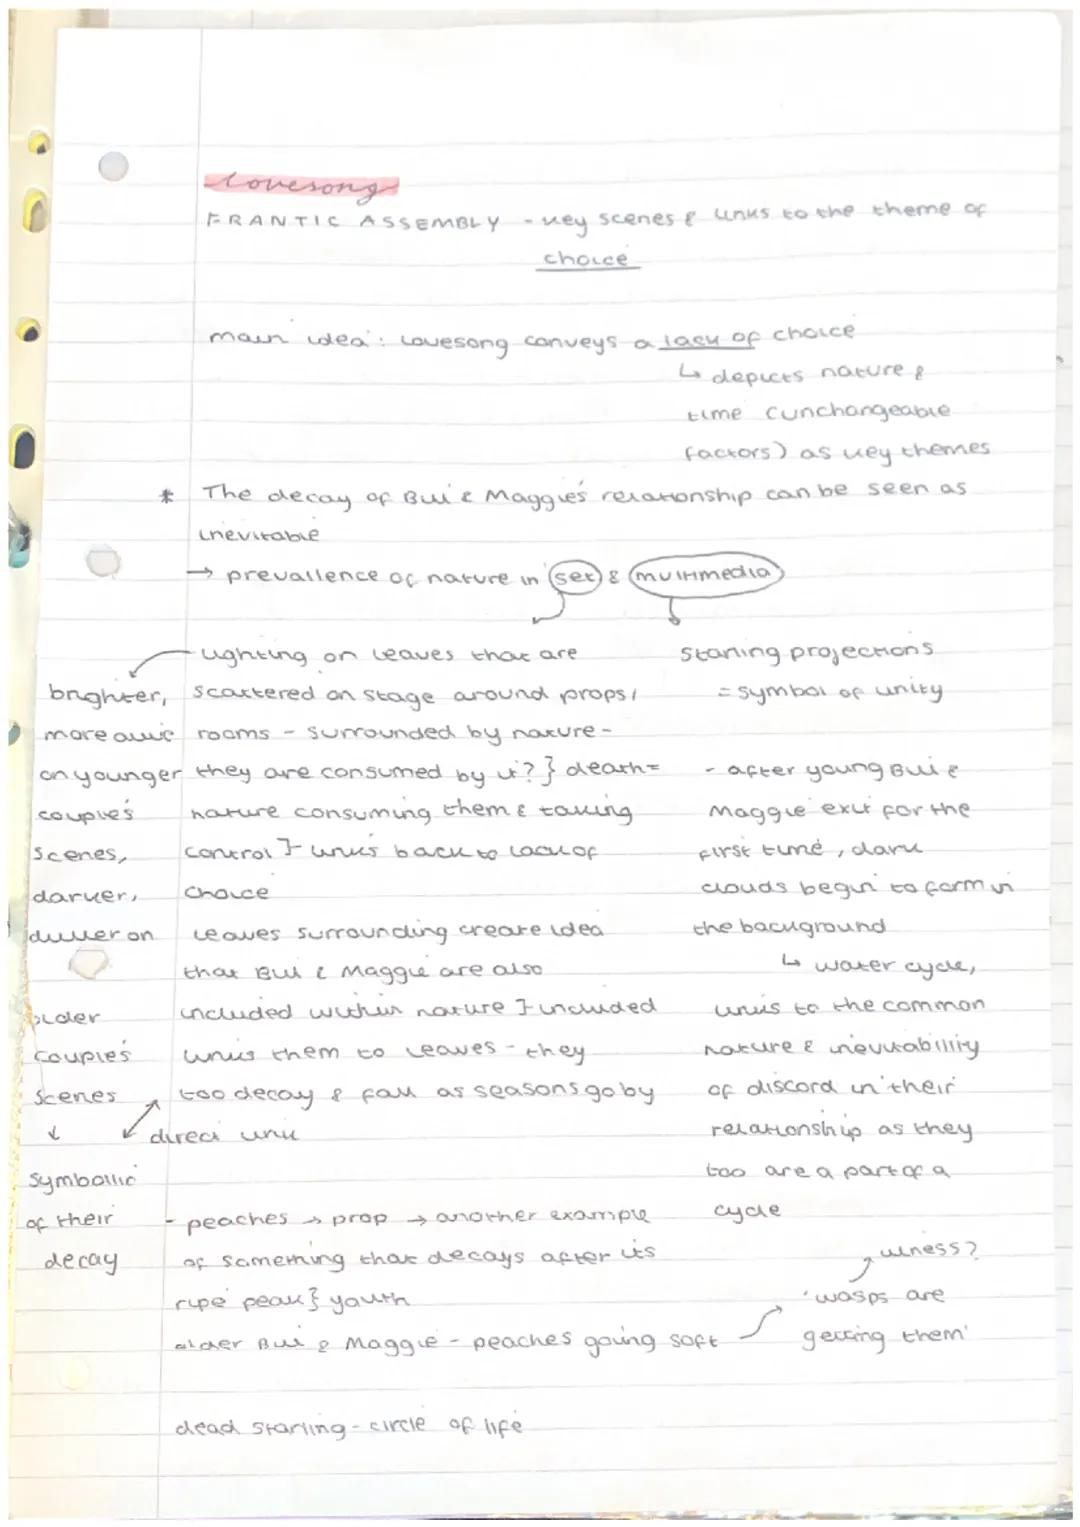 Lovesong
FRANTIC ASSEMBLY - key scenes & links to the theme of
choice
main idea: Lovesong conveys a lack of choice
↳ depicts nature &
time (unchangeable
factors) as key themes
* The decay of Bill & Maggie's relationship can be seen as
inevitable
→ prevallence of nature in set & multimedia
lighting on leaves that are
scattered on stage around props/
rooms - surrounded by nature -
they are consumed by it? } death =
nature consuming them & taking
control } links back to lack of
choice
leaves surrounding create idea
that Bill & Maggie are also
included within nature } included
links them to leaves - they
too decay & fall as seasons go by
direct link
brighter,
more alive
on younger
couple's
scenes,
darker,
duller on
older
couple's
scenes
↓
symbollic
of their
decay
starling projections
= symbol of unity
- after young Bill &
Maggie exit for the
first time, dark
clouds begin to form in
the background
↳ water cycle,
links to the common
nature & inevitability
of discord in their
relationship as they
too are a part of a
cycle
- peaches → prop → another example
of something that decays after its
ripe peak } youth
older Bill & Maggie - peaches going soft
'wasps are
getting them'
illness?
dead starling - circle of life